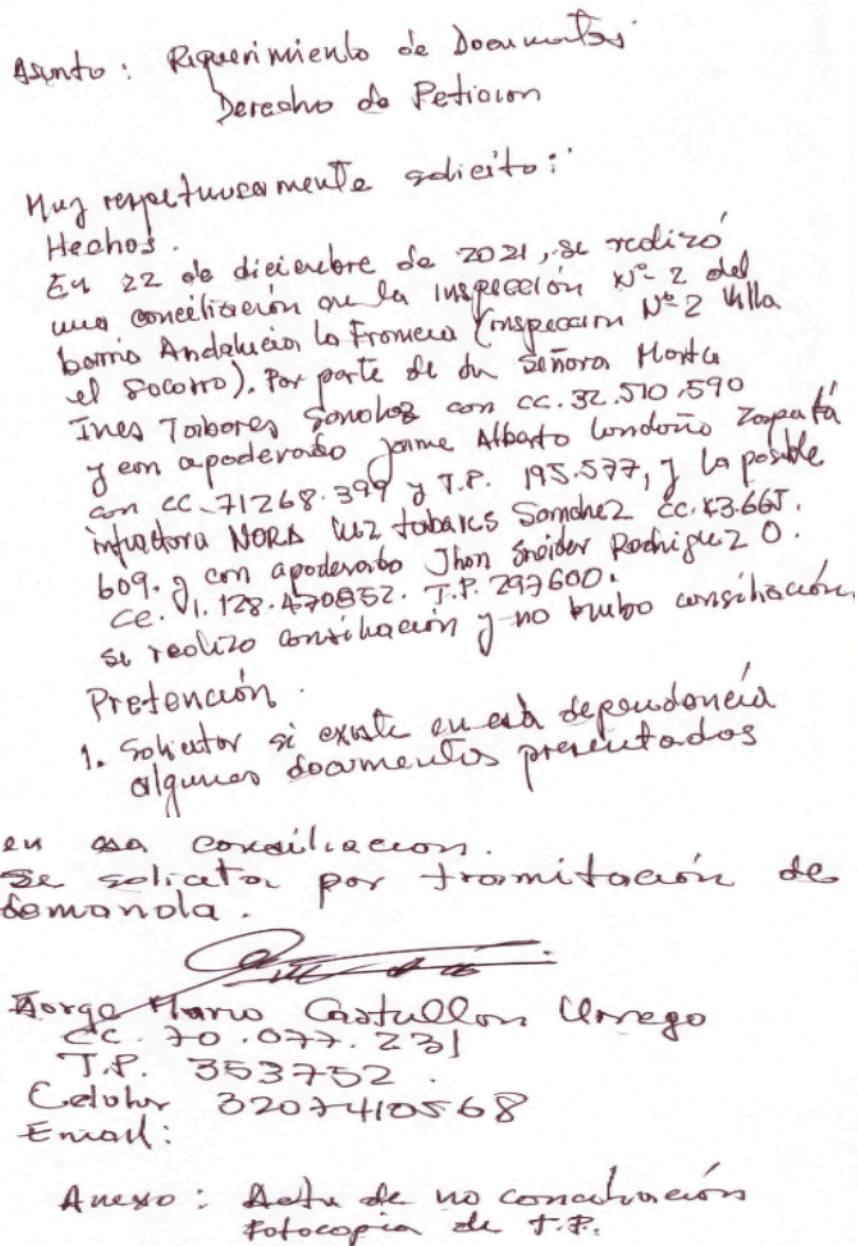 Asunto: Requerimiento de Documentos
Derecho de Peticion
Muy respetuosamente solicito:
Hechos.
En 22 de diciembre de 2021, se realizó
una conciliación en la inspección Nº 2 del
barrio Andalucia la Francia (inspeccion Nº 2 Villa
el Socorro). Por parte de la Señora Marta
Ines Tabares Sanchez con cc. 32.510.590
y con apoderado jaime Alberto Londoño Zapata
con cc. 71268.399 y T.P. 195.577, y la posible
infractora NORA luz tabares Sanchez cc. 43.665.
609. y con apoderado Jhon Sneider Rodriguez O.
cc. 1.128.470852. T.P. 297600.
se realizo consiliación y no hubo consiliación
Pretención.
1. Solicitar si existe en esa dependencia
algunos documentos presentados
en esa consiliacion.
Se solicita por tramitación de
demanda.
Jorge Mario Castrillon Urrego
cc. 70.077.231
T.P. 353752.
Celular 3207410568
Email:
Anexo: Acta de no conciliación
Fotocopia de T.P.